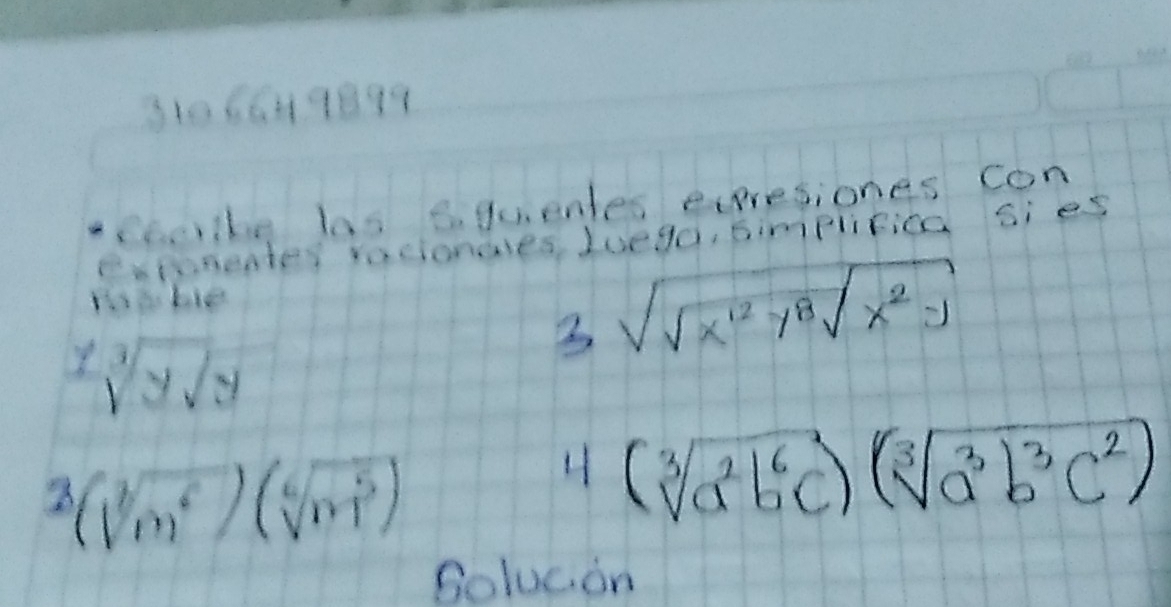 3106649899
• Escribe las siguientes expresiones con
exponentes racionales, luego, simplifica si es
posible
1 ∛(y√y)
3 √(√(x¹² y⁸ √(x² y)))
(∛m⁶)(⁶√m⁵)
4 (∛(a² b⁶ c)) (∛(a³ b³ c²))
Solución